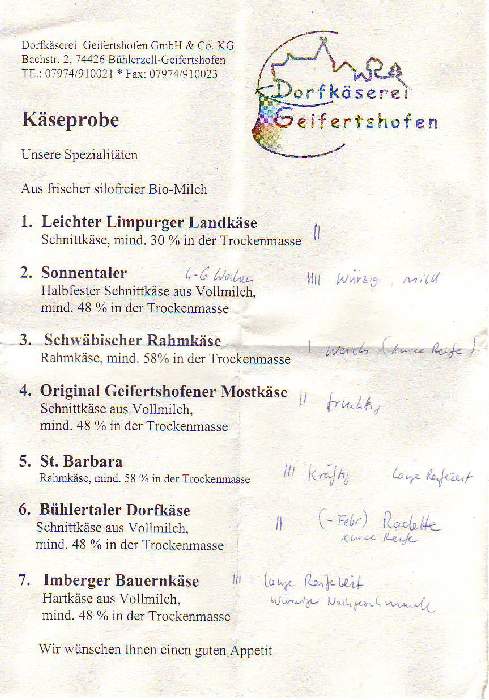 Dorfkäserei Geifertshofen GmbH & Co. KG
Bachstr. 2, 74426 Bühlerzell-Geifertshofen
TEL: 07974/910021 * Fax: 07974/910023
Dorfkäserei
Geifertshofen
Käseprobe
Unsere Spezialitäten
Aus frischer silofreier Bio-Milch
1. Leichter Limpurger Landkäse
Schnittkäse, mind. 30 % in der Trockenmasse
2. Sonnentaler 4-6 Wochen würzig, mild
Halbfester Schnittkäse aus Vollmilch,
mind. 48 % in der Trockenmasse
3. Schwäbischer Rahmkäse
Rahmkäse, mind. 58% in der Trockenmasse weich (kurze Reife)
4. Original Geifertshofener Mostkäse
Schnittkäse aus Vollmilch, fruchtig
mind. 48 % in der Trockenmasse
5. St. Barbara kräftig lange Reifezeit
Rahmkäse, mind. 58 % in der Trockenmasse
6. Bühlertaler Dorfkäse
Schnittkäse aus Vollmilch, (-Febr)
mind. 48 % in der Trockenmasse kurze Reife
7. Imberger Bauernkäse lange Reifezeit
Hartkäse aus Vollmilch, würziger Nachgeschmack
mind. 48 % in der Trockenmasse
Wir wünschen Ihnen einen guten Appetit